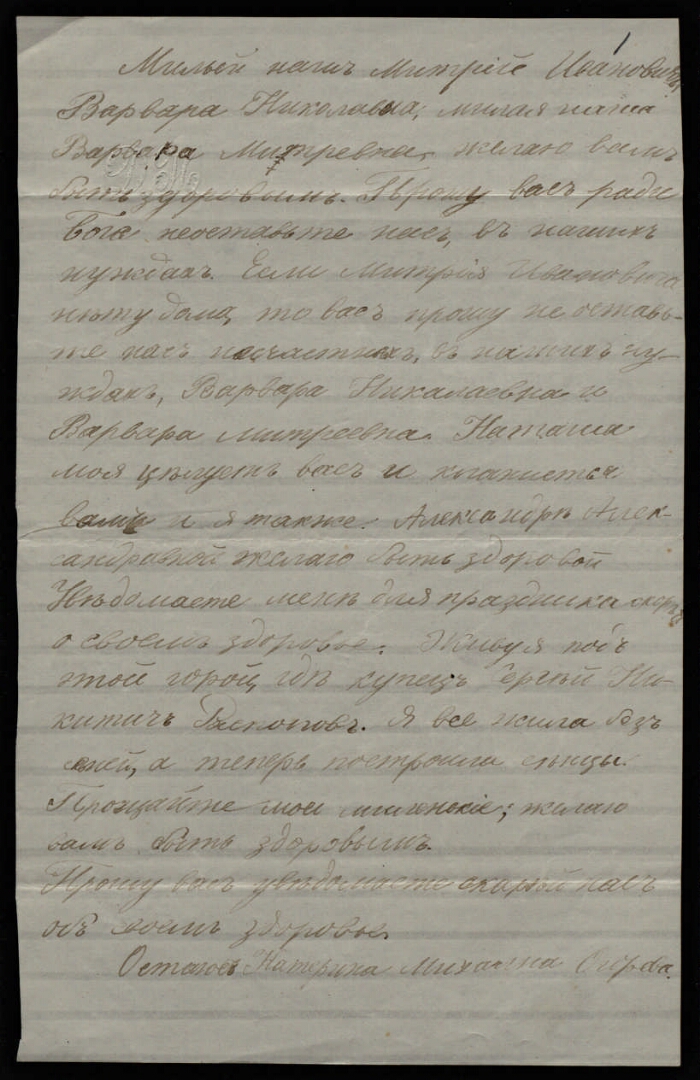 1
Милый нашъ Митрій Ивановичъ,
Варвара Николавна, милая наша
Варвара Митревна, желаю вамъ
быть здоровымъ. Прошу васъ ради
Бога неоставьте насъ, въ нашихъ
нуждахъ. Если Митрія Ивановича
нѣту дома, то васъ прошу не оставь-
те насъ несчастныхъ, въ нашихъ ну-
ждахъ, Варвара Никалаевна и
Варвара Митреевна. Наташа
моя цѣлуетъ васъ и кланиется
вамъ и я также. Александрѣ Алек-
сандравной желаю быть здоровой
Увѣдомаете менѣ для праздника скорѣя
о своемъ здоровье. Живу я подъ
этой горой, гдѣ купецъ Сергѣй Ни-
китичъ. Я все жила безъ
сеней, а теперь построила сѣнцы.
Прощайте мои миленькіе; желаю
вамъ быть здоровымъ.
Прошу васъ увѣдомаете скарѣй насъ
объ своемъ здоровье.
Остаюсь Катерина Михайлна